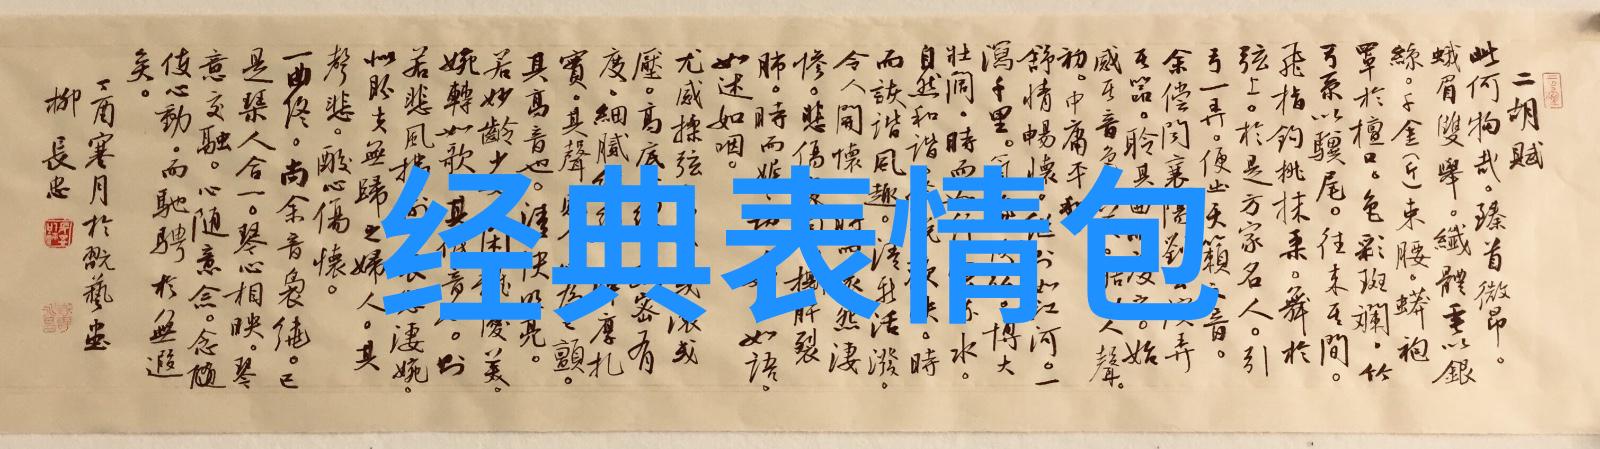 二胡賦
此何物哉。臻首微昂。
蛾眉雙舉。纖體垂以銀
絲。千金(斤)束腰。蟒袍
罩於檀口。色彩斑斕。竹
弓系以驥尾。往来其間。
飛指鉤挑抹柔。舞於
弦上。於是方家名人。引
弓一弄。便出天籟之音。
余偿闵襄陽劉 演弄
其器。聆其曲 始
感其音色 人聲。
初。中庸平和
舒情暢懷。 如江河。一
瀉千里。 博大
壯闊。時而 水。
自然和諧 時
而詼諧風趣。清新活潑。
令人開懷。時而哀然淒
惨。悲傷 肝裂
肺。時而 如語。
如述如咽。
尤感揉弦 或
壓。高底 密有
度。細膩 摩扎
實。其聲 顫。
其高音也。清快明亮。
若妙齡少女 優美。
婉轉如歌。其低音 則
若悲風 淒婉。
似盼夫無歸之婦人。其
聲悲。酸心傷懷。
一曲终。尚余音裊繞。已
是琴人合一。琴心相映。琴
意交融。心随意念。念随
使心動。而馳騁於無遐
矣。
丁酉寒月於翫藝堂
柳長忠
经典表情包